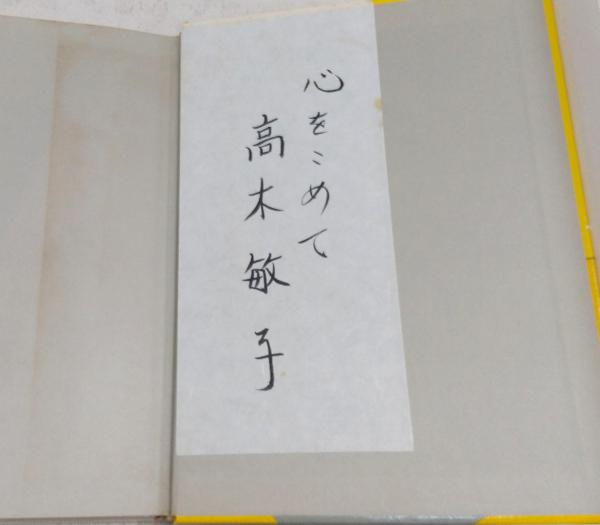 心をこめて
高木敏子